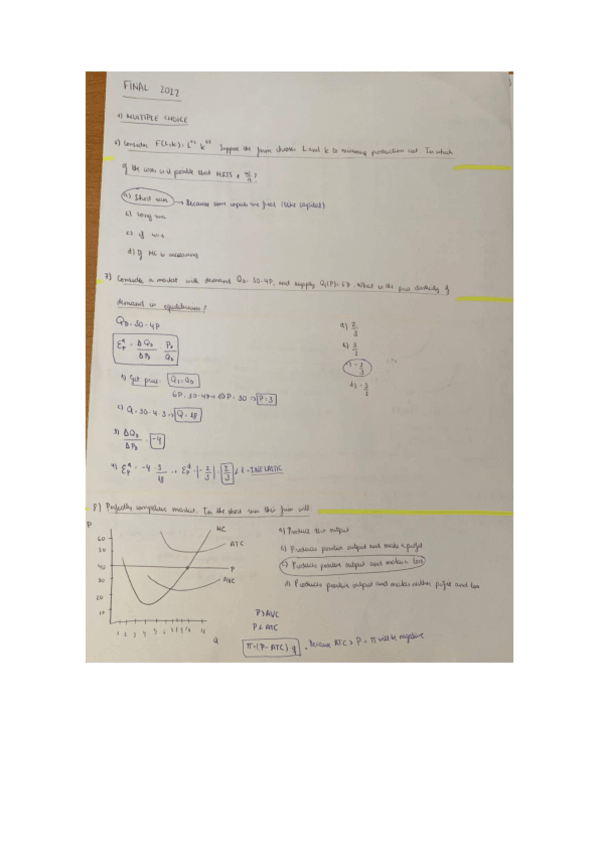 FINAL 2022
1) MULTIPLE CHOICE
6) Consider F(L,K) = L K Suppose the firm chooses L and K to minimize production cost. In which
of the cases is it possible that MRTS ≠ w/r?
a) Short run → Because some inputs are fixed (like capital)
b) long run
c) if
d) If MC is increasing
7) Consider a market with demand QD = 30-4P, and supply Qs(P) = 6P. What is the price elasticity of
demand in equilibrium?
QD = 30-4P
a) 2/3
b) 3/2
c) -2/3
d) -3/2
ΔQD PD
ΔPD QD
1) Get price: Qs = QD
6P = 30-4P → 10P = 30 → P = 3
2) Q = 30-4·3 → Q = 18
3) ΔQD/ΔPD = -4
4) = -4 · 3/18 → = |-2/3| = 2/3 < 1 → INELASTIC
8) Perfectly competitive market. In the short run this firm will:
P
MC
60
50
ATC
40
P
30
AVC
20
10
Q
a) Produce zero output
b) Produces positive output and makes a profit
c) Produces positive output and makes a loss
d) Produces positive output and makes neither profit and loss
P > AVC
P < ATC
π = (P-ATC)·q
Because ATC > P = π will be negative